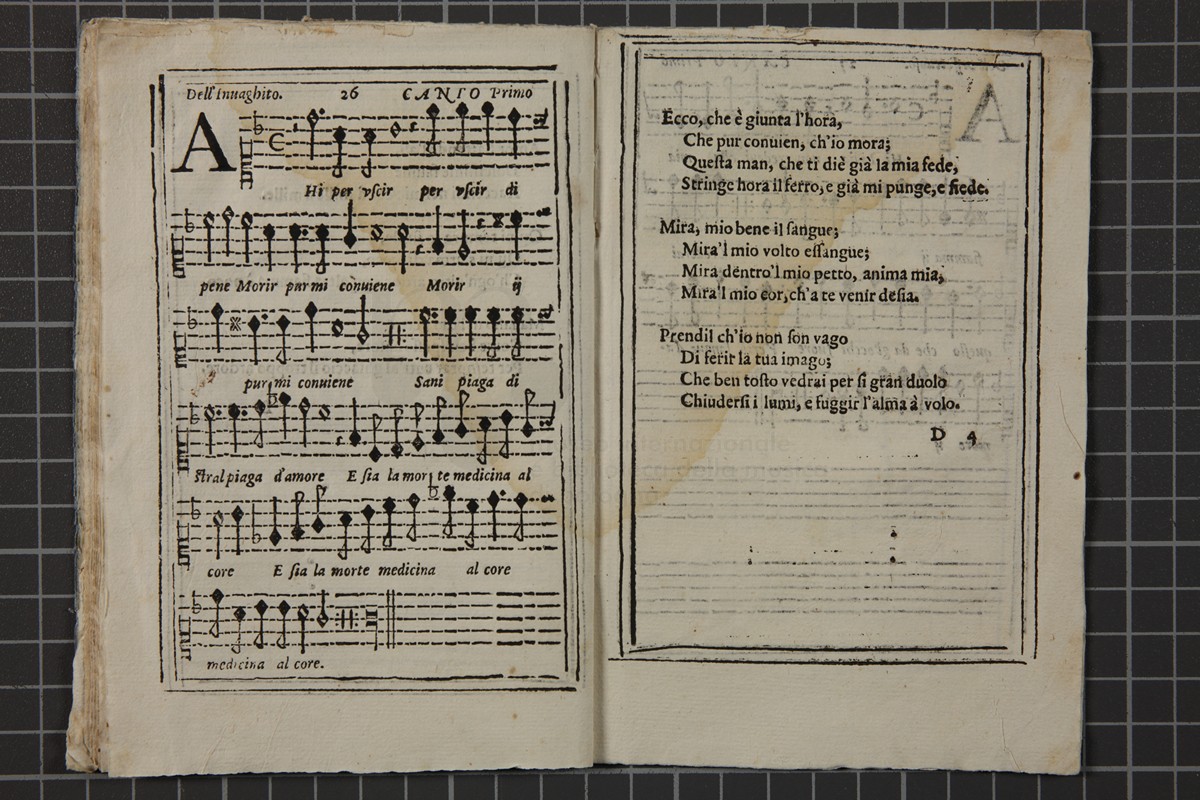 Dell'Inuaghito. 26 CANTO Primo
AHi per vſcir per vſcir di
pene Morir pur mi conuiene Morir ij
pur mi conuiene Sani piaga di
ſtral piaga d'amore E ſia la morte medicina al
core E ſia la morte medicina al core
medicina al core.
Ecco, che è giunta l'hora,
Che pur conuien, ch'io mora;
Queſta man, che ti diè già la mia fede,
Stringe hora il ferro, e già mi punge, e fiede.
Mira, mio bene il ſangue;
Mira'l mio volto eſſangue;
Mira dentro'l mio petto, anima mia,
Mira'l mio cor, ch'a te venir deſia.
Prendil ch'io non ſon vago
Di ferir la tua imago;
Che ben toſto vedrai per ſi gran duolo
Chiuderſi i lumi, e fuggir l'alma à volo.
D 4